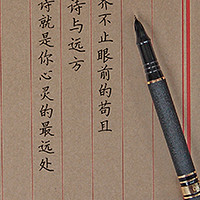 界不止眼前的苟且
诗与远方
诗就是你心灵的最远处